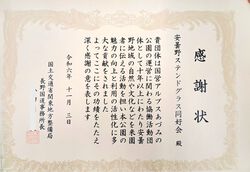 感謝状
安曇野ステンドグラス同好会 殿
貴団体は国営アルプスあづみの
公園の運営に関わる協働活動団
体として十年以上にわたり安曇
野地域の自然や文化などを来園
者に伝える活動を担い本公園の
魅力の向上と利用の活性化に多
大な貢献をされました
よってここにその功績をたたえ
深く感謝の意を表します
令和六年 十一月 三日
国土交通省関東地方整備局
長野国道事務所長